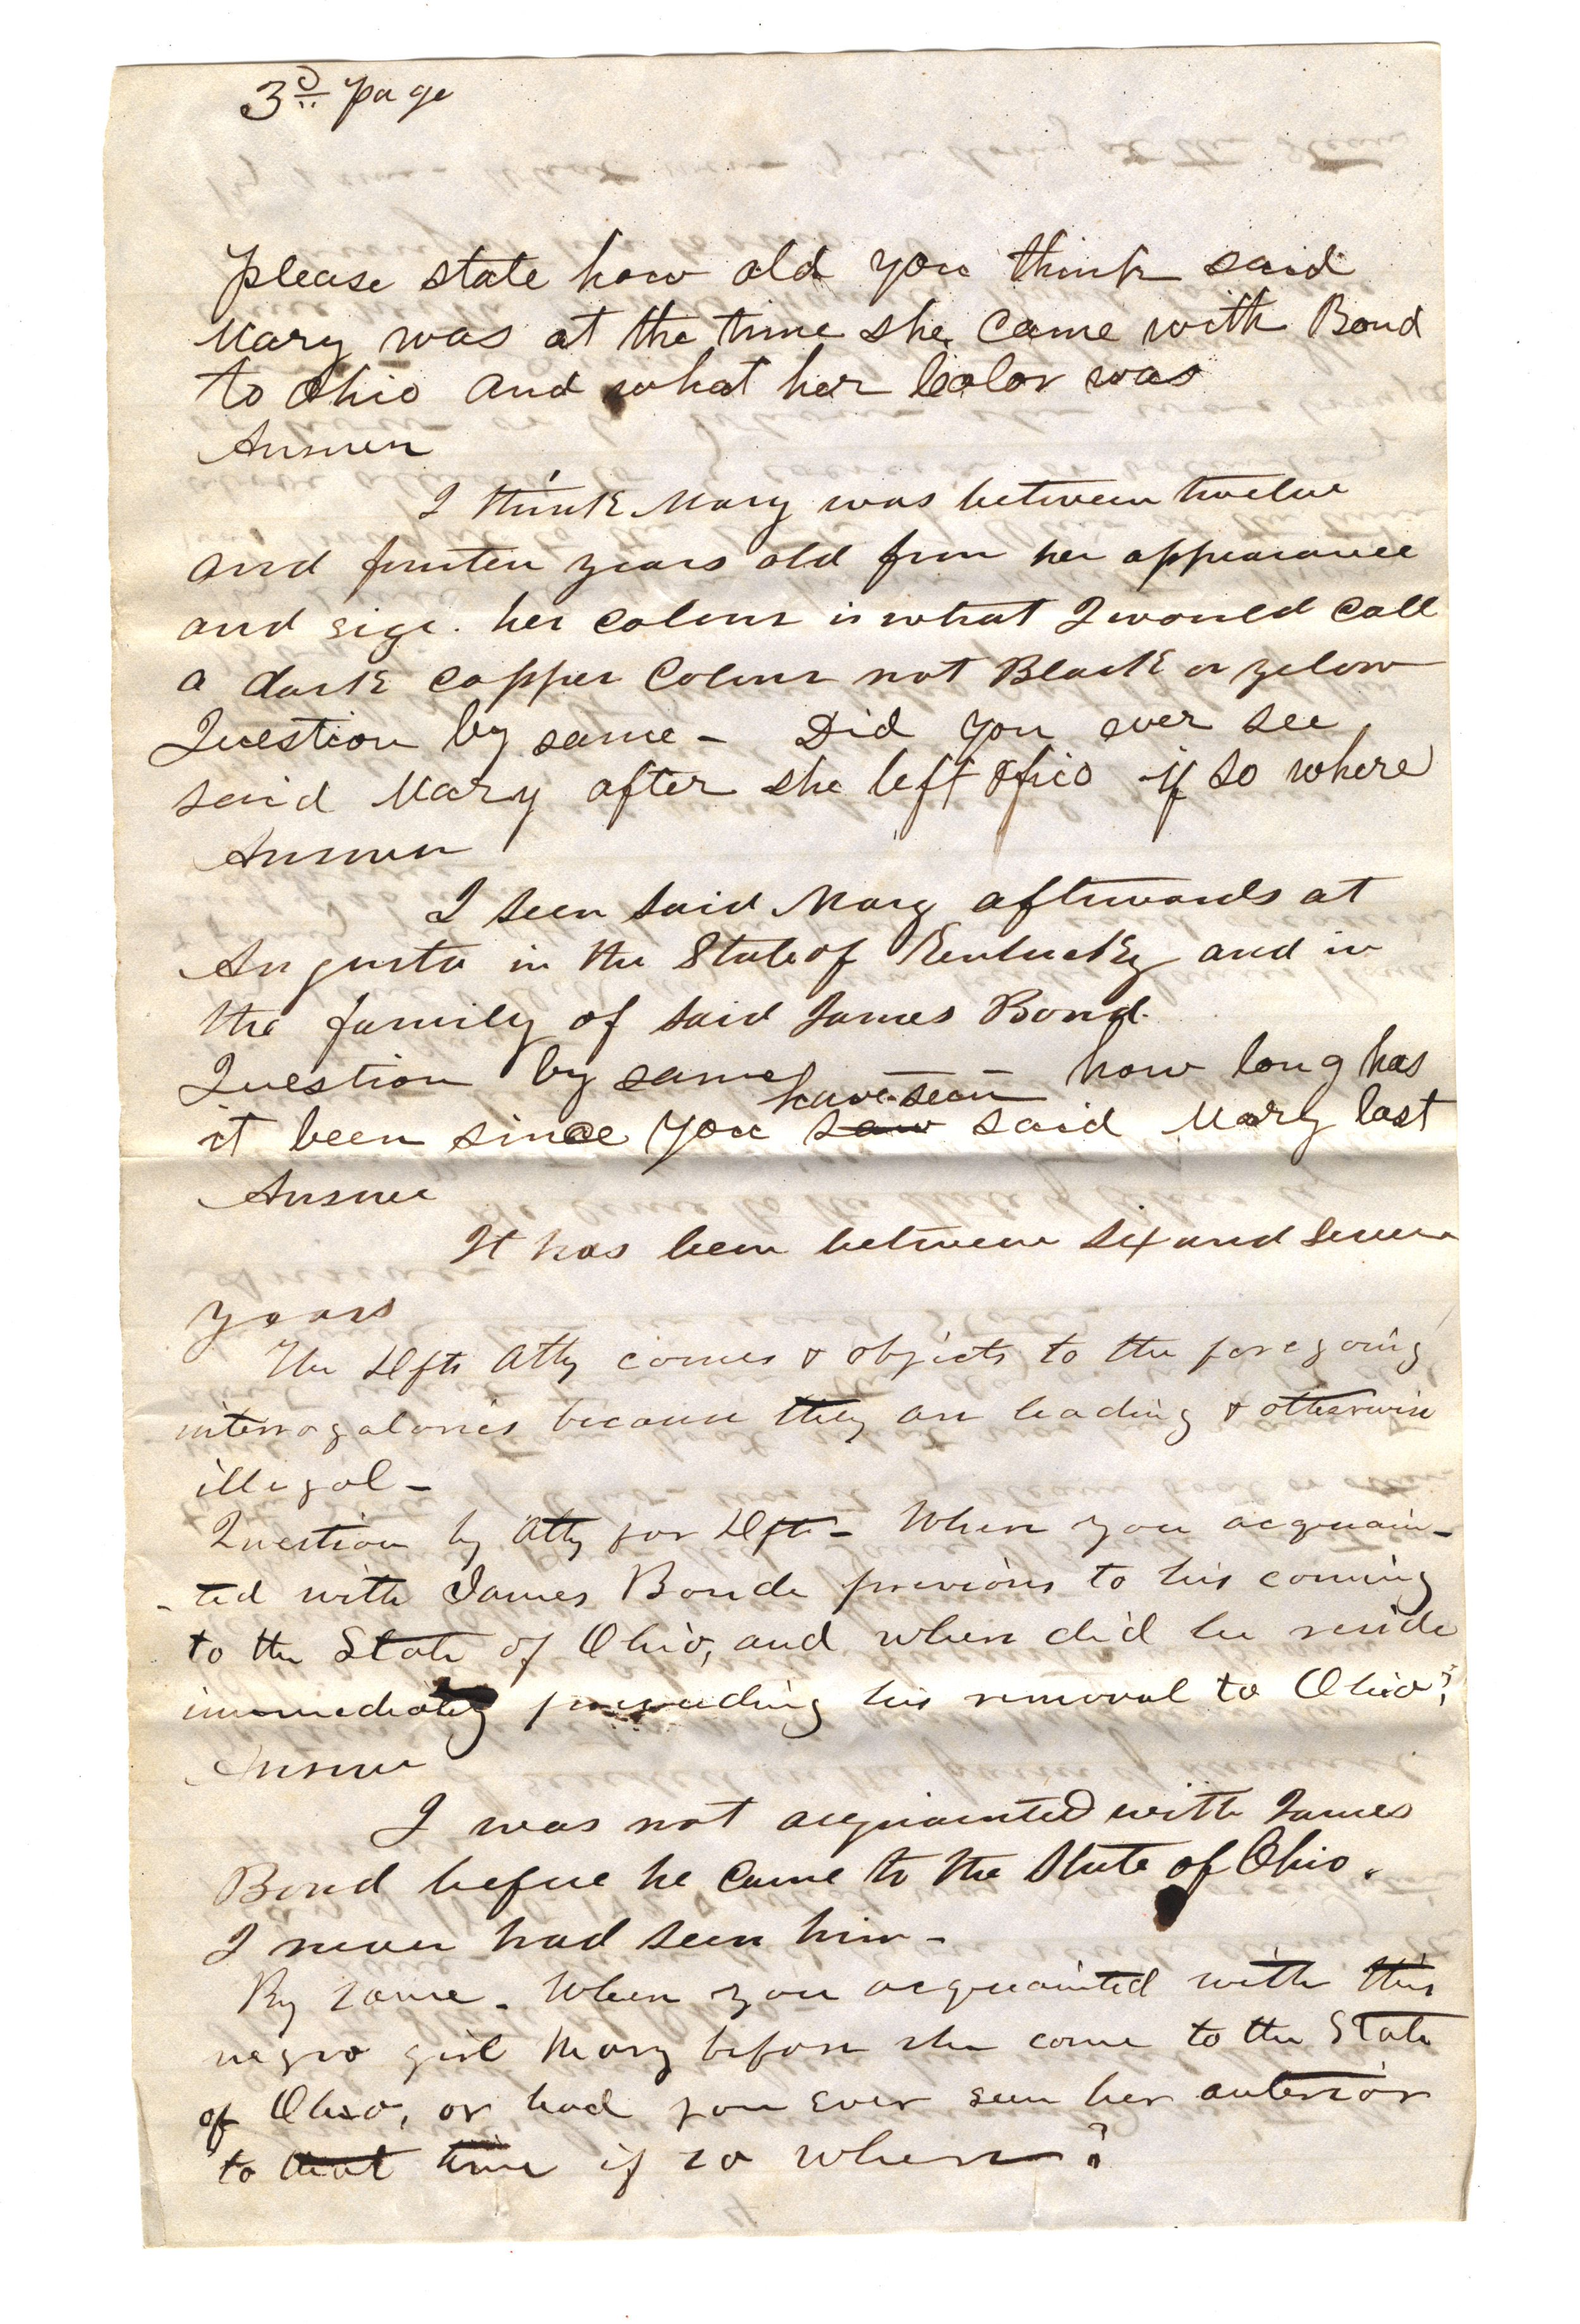 3d page
please state how old you think said
Mary was at the time she came with Bond
to Ohio and what her Color was
Answer
I think Mary was between twelve
and fourteen years old from her appearance
and size. her colour is what I would call
a dark copper Colour not Black or yelow
Question by same - Did you ever see
said Mary after she left Ohio if so where
Answer
I seen said Mary afterwards at
Augusta in the State of Kentucky and in
the family of said James Bond.
Question by same how long has
it been since you saw have seen said Mary last
Answer
It has been between six and seven
years
The Defts Atty comes & objects to the foregoing
interrogatories because they are leading & otherwise
illegal -
Question by Atty for Deft - When you acquain-
-ted with James Bonde previous to his coming
to the State of Ohio, and where did he reside
immediately preceeding his removal to Ohio?
Answer
I was not acquainted with James
Bond before he came to the State of Ohio.
I never had seen him -
By same - When you acquainted with this
negro girl Mary before she come to the State
of Ohio, or had you ever seen her anterior
to that time if so where?